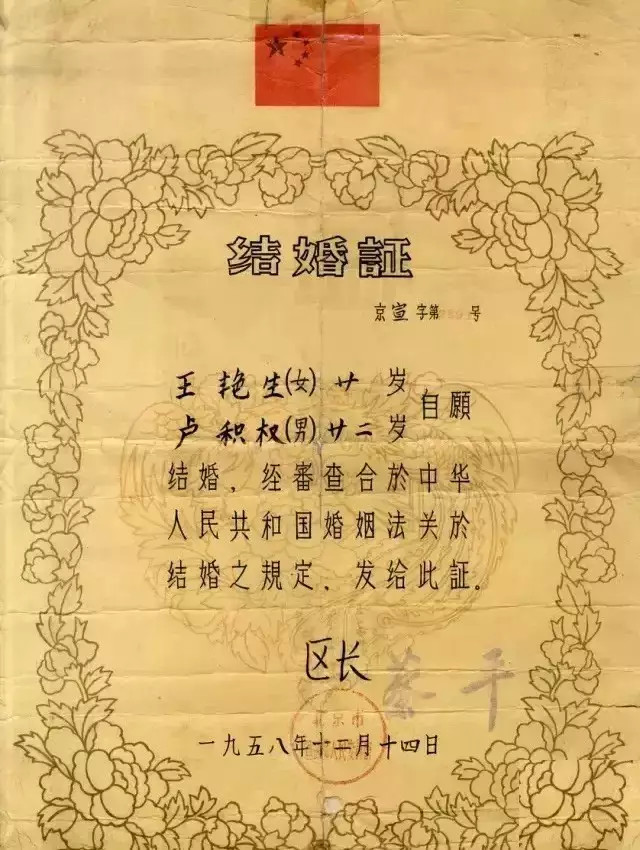 结婚証
京宣字第 号
王艳生(女)廿岁
卢积权(男)廿二岁
自願
结婚、经審查合於中华
人民共和国婚姻法关於
结婚之規定、发给此証。
区长 蔡平
北京市
一九五八年十二月十四日